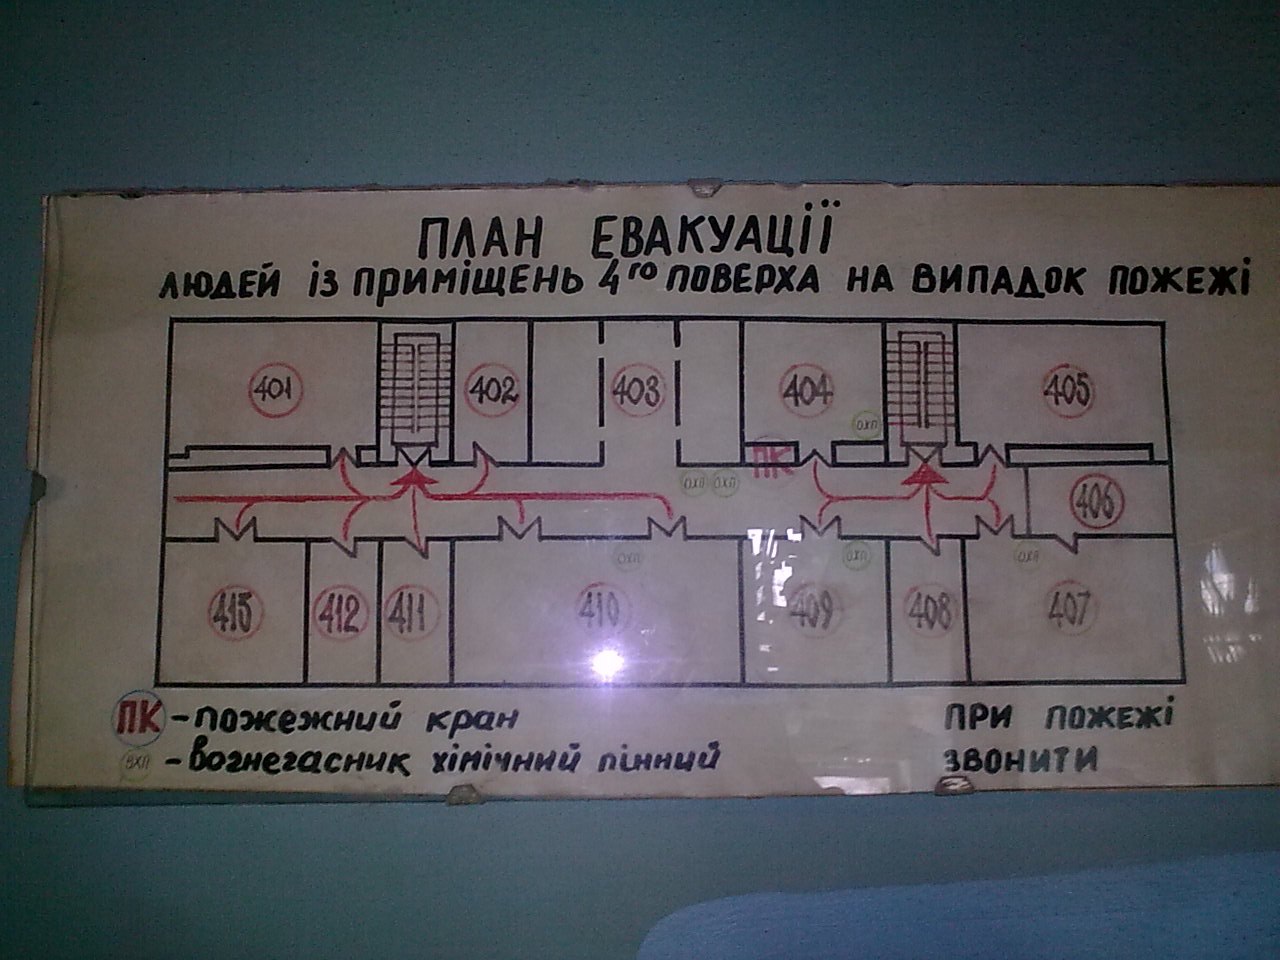 ПЛАН ЕВАКУАЦІЇ
ЛЮДЕЙ ІЗ ПРИМІЩЕНЬ 4го ПОВЕРХА НА ВИПАДОК ПОЖЕЖІ
401 402 403 404 ОХП 405
ПК
ОХП ОХП 406
ОХП ОХП ОХП
415 412 411 410 409 408 407
ПК - пожежний кран
ВХП - вогнегасник хімічний пінний
ПРИ ПОЖЕЖІ
ЗВОНИТИ